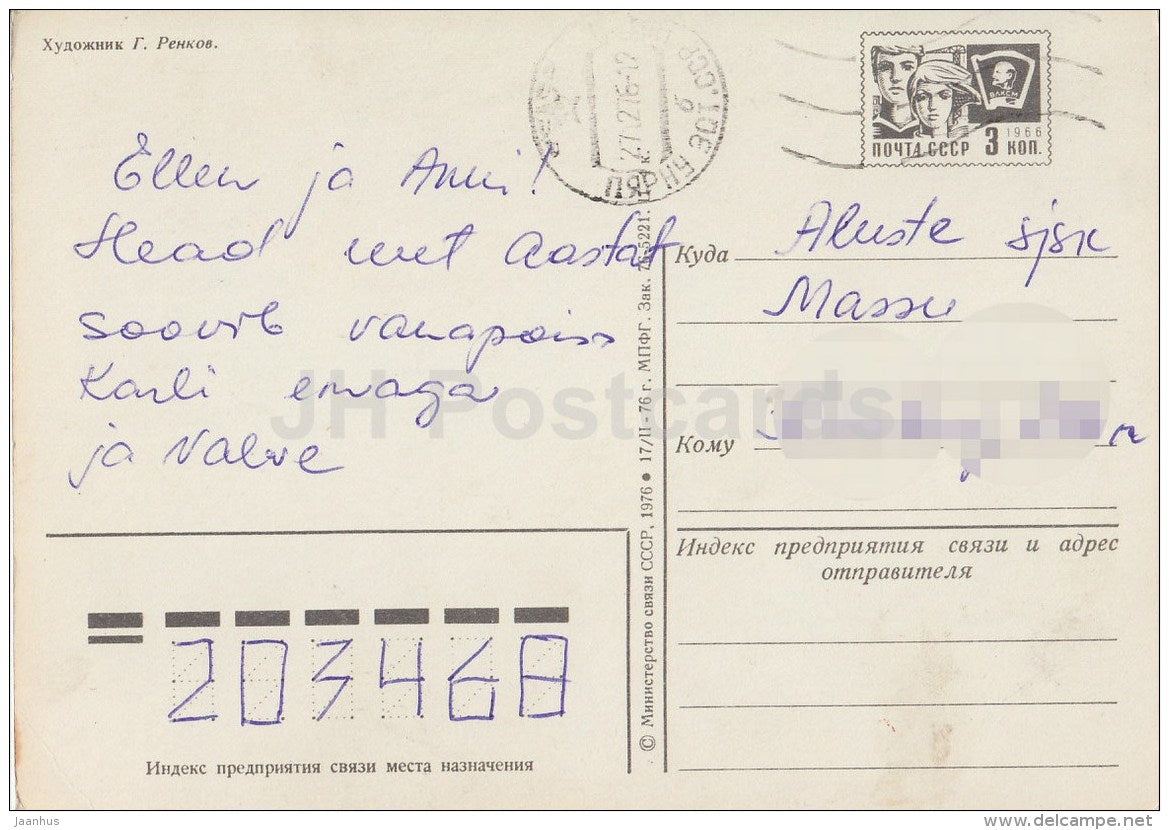 Художник Г. Ренков.
ПОЧТА СССР 3 КОП.
1966
ВЛКСМ
27.1276-12
Ellen ja Anni!
Head uut Aastat
soovib vanapoiss
Karli emaga
ja Valve
Куда Aluste sjsk
Massu
Кому
Индекс предприятия связи и адрес
отправителя
© Министерство связи СССР, 1976 ● 17/II-76 г. МПФГ. Зак. 76-5221.
203468
Индекс предприятия связи места назначения
JH Postcards
Jaanhus
www.delcampe.net